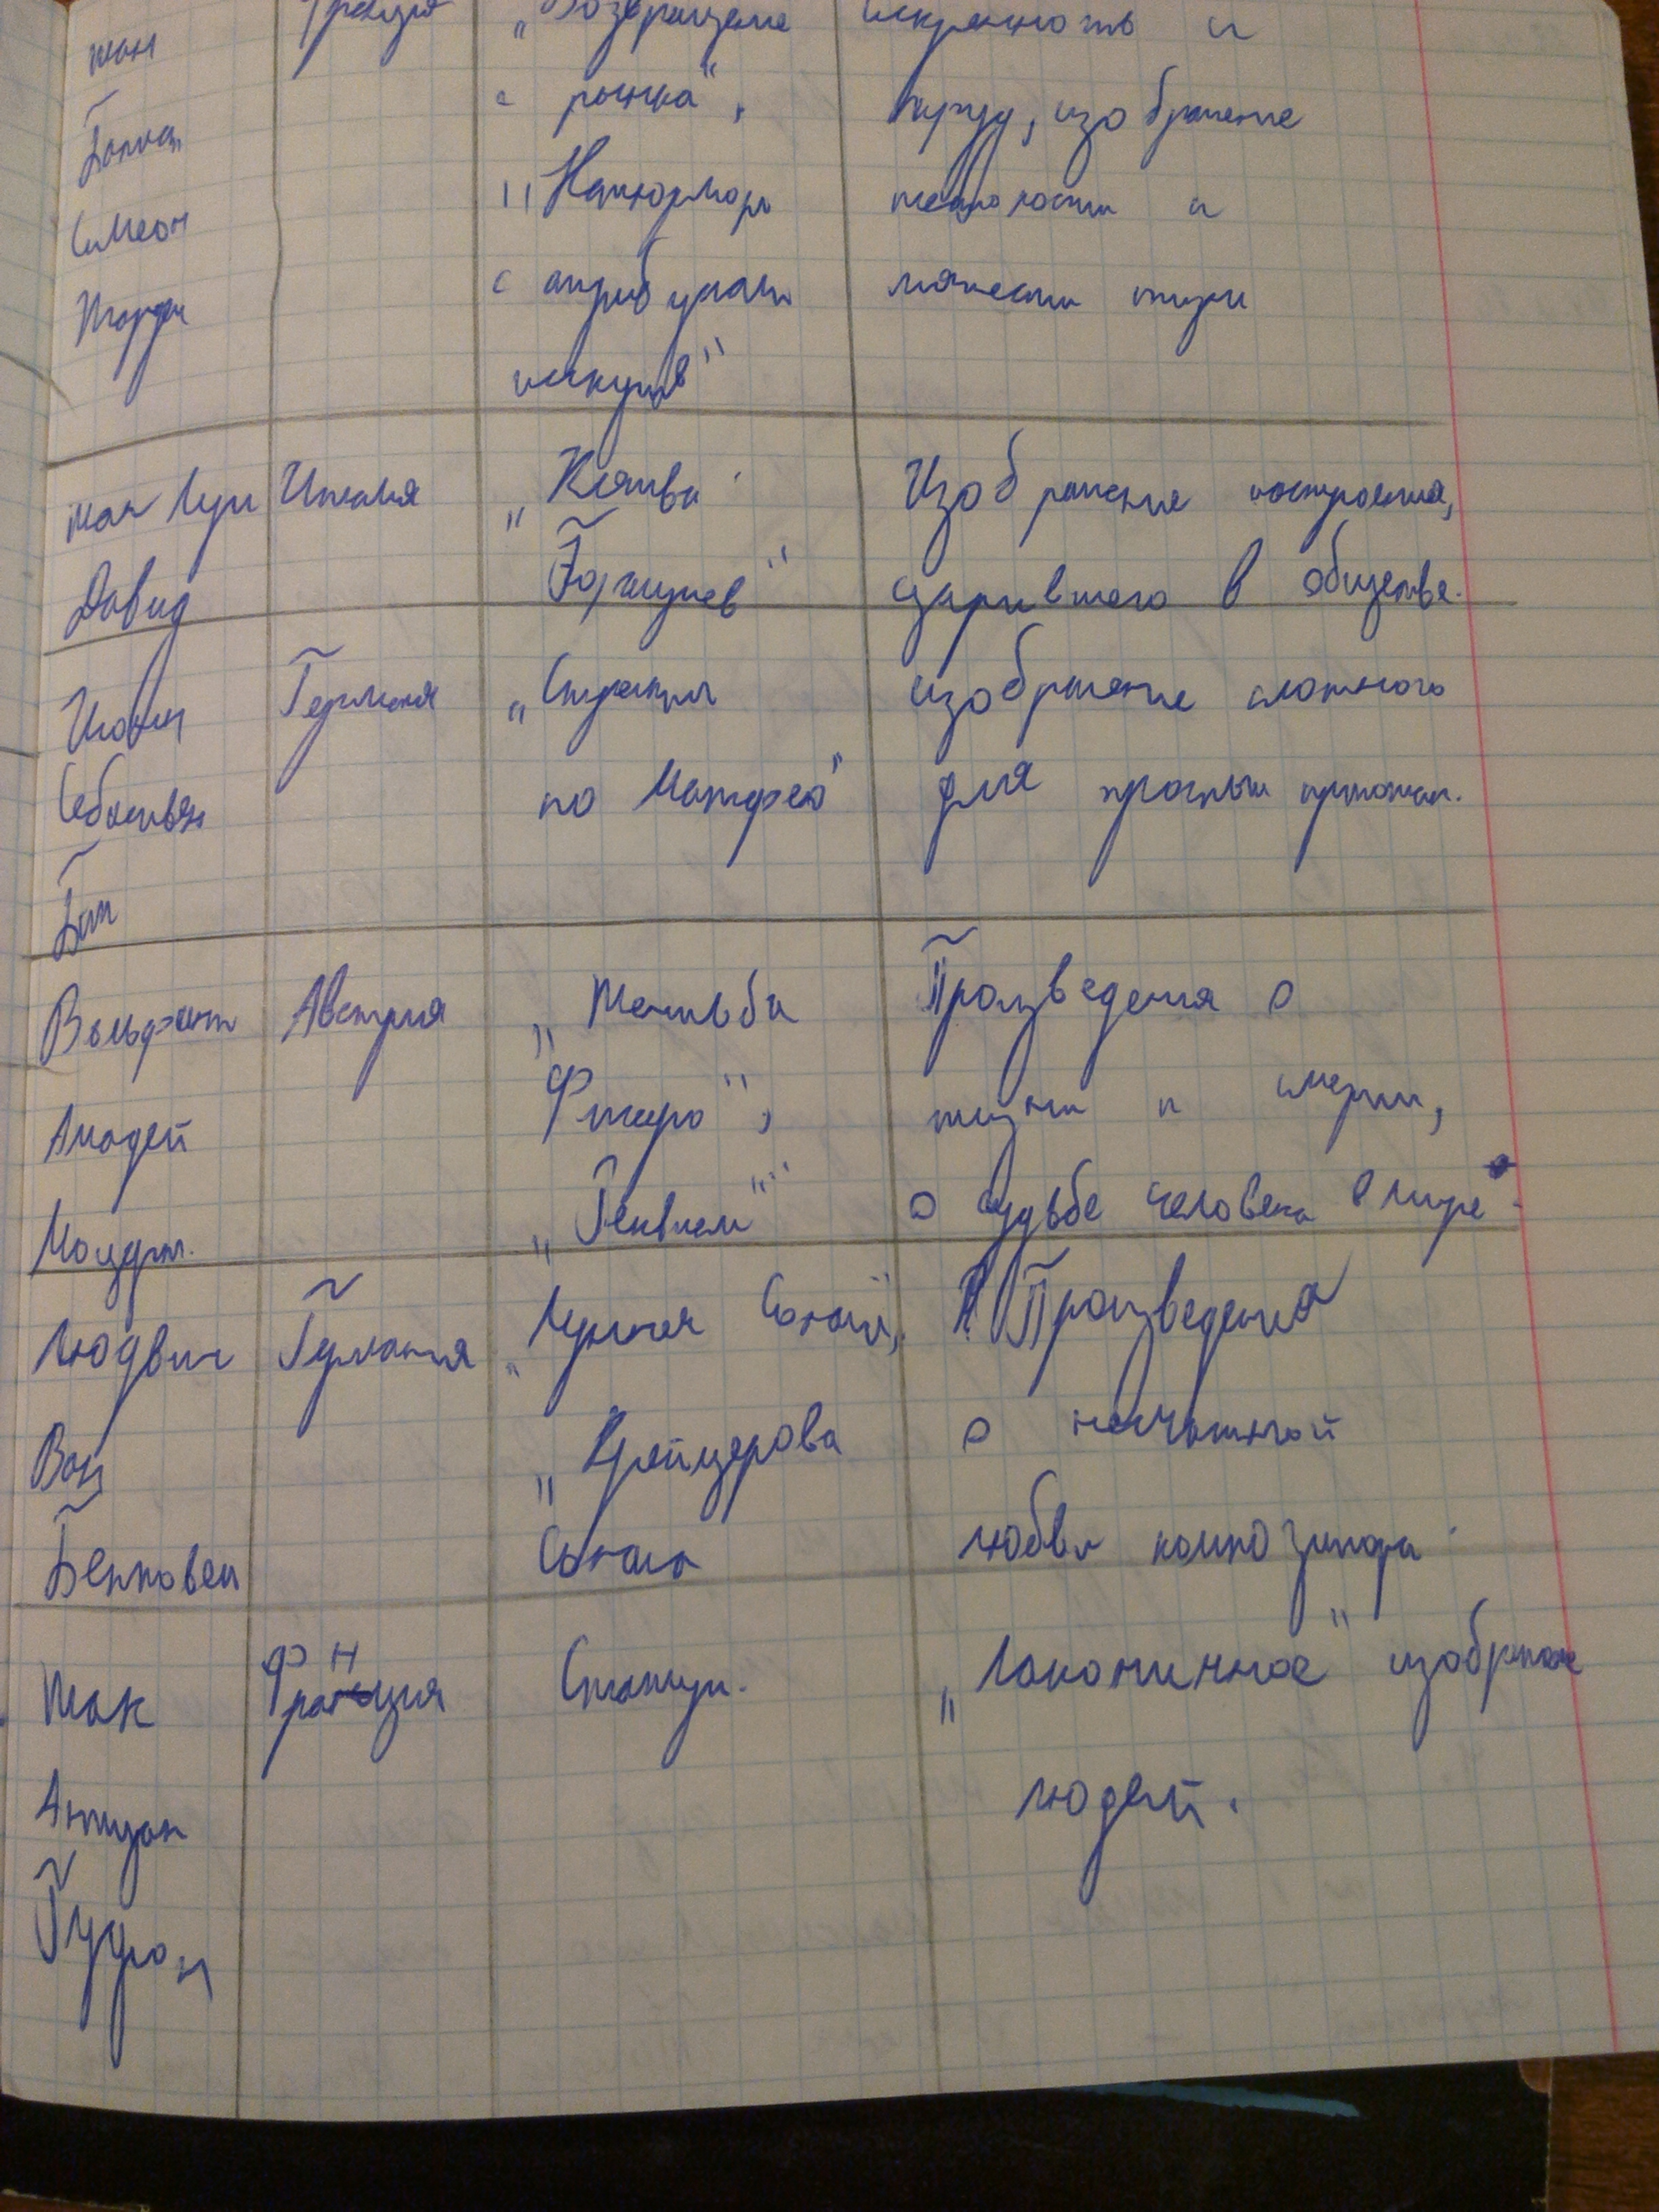 Жан Франция „Возвращение искренность и
Батист с рынка", правду, изображение
Симеон „Натюрморт теплоты и
Шарден с атрибутами мягкости жизни
искусств"
Жан Луи Италия „Клятва Изображение настроения,
Давид Горациев" царившего в обществе.
Иоган Германия „Страсти изображение сложного
Себастьян по Матфею" для простых прихожан.
Бах
Вольфганг Австрия „Женитьба Произведения о
Амадей Фигаро", жизни и смерти,
Моцарт. „Реквием" о судьбе человека в мире.
Людвиг Германия „Лунная Соната", Произведения
Ван „Крейцерова о несчастной
Бетховен Соната любви композитора.
Жак Франция Статуи. „Лаконичное" изображение
Антуан людей.
Гудон